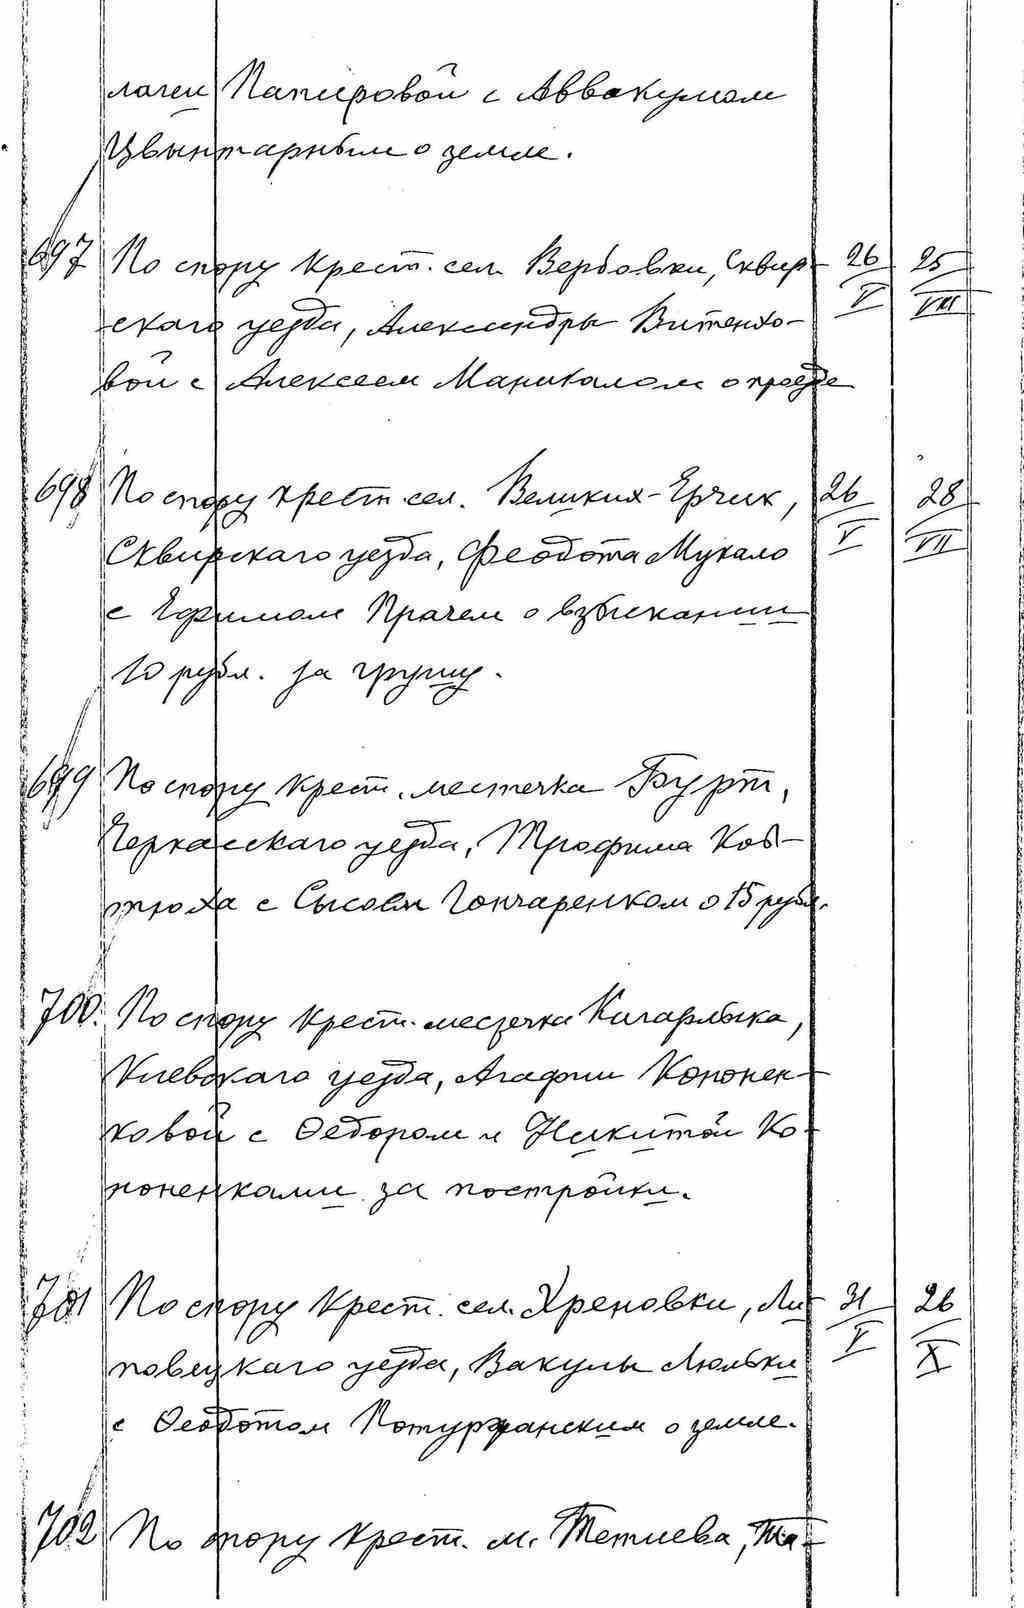 лагеи Папировой с Аввакумом
Цвынтарным о земле.
697 По спору крест. сел. Вербовки, Сквир- 26/V 25/VIII
скаго уезда, Александры Витенко-
вой с Алексеем Маникалом о проезде
698 По спору крест. сел. Великия-Ерчик, 26/V 28/VII
Сквирскаго уезда, Феодота Мукало
с Ефимом Прачем о взыскании
10 рубл. за грушу.
699 По спору крест. местечка Бурт,
Черкасскаго уезда, Трофима Ков-
тюха с Сысоем Гончаренком о 15 рубл.
700. По спору крест. месзечка Кигарлыка,
Киевскаго уезда, Агафии Кононен-
ковой с Ѳедором и Никитой Ко-
ноненками за постройки.
701 По спору крест. сел. Хреновки, Ли- 31/V 26/X
повецкаго уезда, Вакулы Люльки
с Ѳеодотом Потуржанским о земле.
702 По спору крест. м. Тетиева, Та-